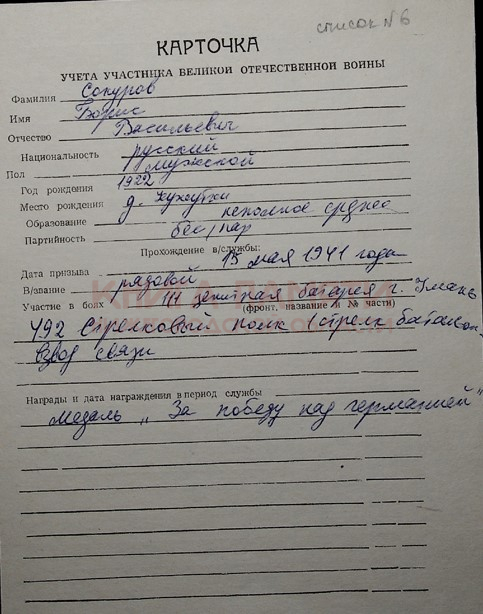 список №6
КАРТОЧКА
УЧЕТА УЧАСТНИКА ВЕЛИКОЙ ОТЕЧЕСТВЕННОЙ ВОЙНЫ
Фамилия Сокуров
Имя Борис
Отчество Васильевич
Национальность русский
Пол мужской
Год рождения 1922
Место рождения д.
Образование неполное среднее
Партийность бес/пар
Прохождение в/службы:
Дата призыва 15 мая 1941 года
В/звание рядовой
КНИГА ПАМЯТИ
Участие в боях 111 зенитная батарея г. Умань
(фронт, название и № части)
492 стрелковый полк 1 стрелк батальон
взвод связи
Награды и дата награждения в период службы
Медаль „За победу над германией"